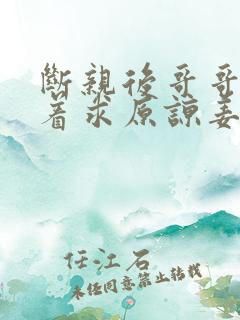 斷親後哥哥
着求原諒姜
任江石
未經同意禁止轉載